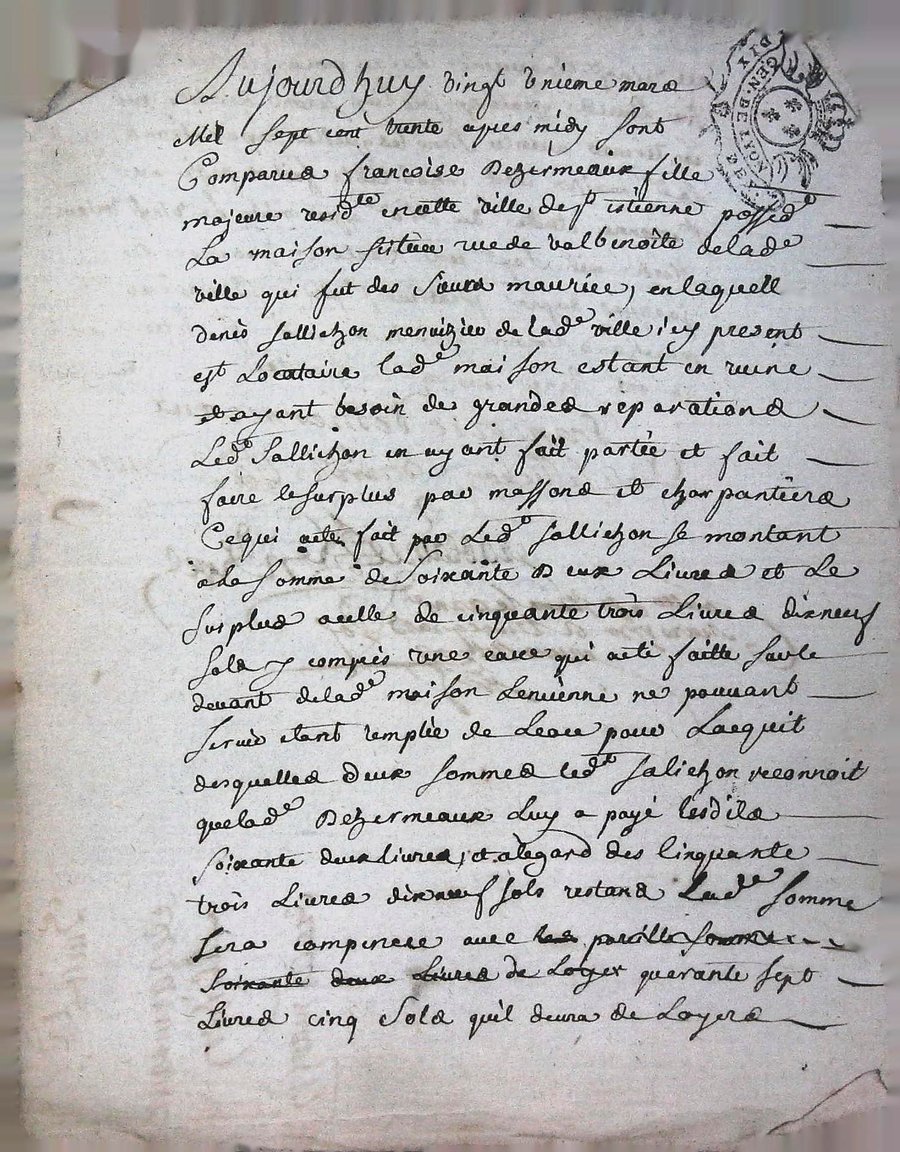 Aujourd'huy vingt unieme mars
Mil sept cent trente apres midy sont
Comparus francoise Dezermeaux fille
majeure resid.te en cette ville de s.t estienne possed.t
La maison sittuée rue de valbenoîte de lad.e
ville qui fut des Sieurs maurice, en laquell
denis Sallichon menuizier de lad.e ville icy present
est Locataire lad.e maison estant en ruine
et ayant besoin de grandes réparations
Led.t Sallichon en ayant fait partie et fait
faire le surplus par massons et charpantiers
Ce qui a eté fait par Led.t Sallichon se montant
a la somme de Soixante Deux Livres et Le
Surplus a celle de cinquante trois Livres dixneuf
Sols y compris une cave qui a eté faitte sur le
devant de lad.e maison L'encienne ne pouvant
servir etant remplie de Leau pour L'acquit
desquelles deux sommes led.t Salichon reconnoit
que lad.e Dezermeaux Luy a payé lesdits
Soixante deux livres, et a legard des Cinquante
trois Livres dixneuf sols restans Lad.e somme
sera compensée avec les pareille somme
Soixante deux Livres de Loyer quarante sept
Livres cinq Sols qu'il devra de Loyers
GEN. DE
DIX